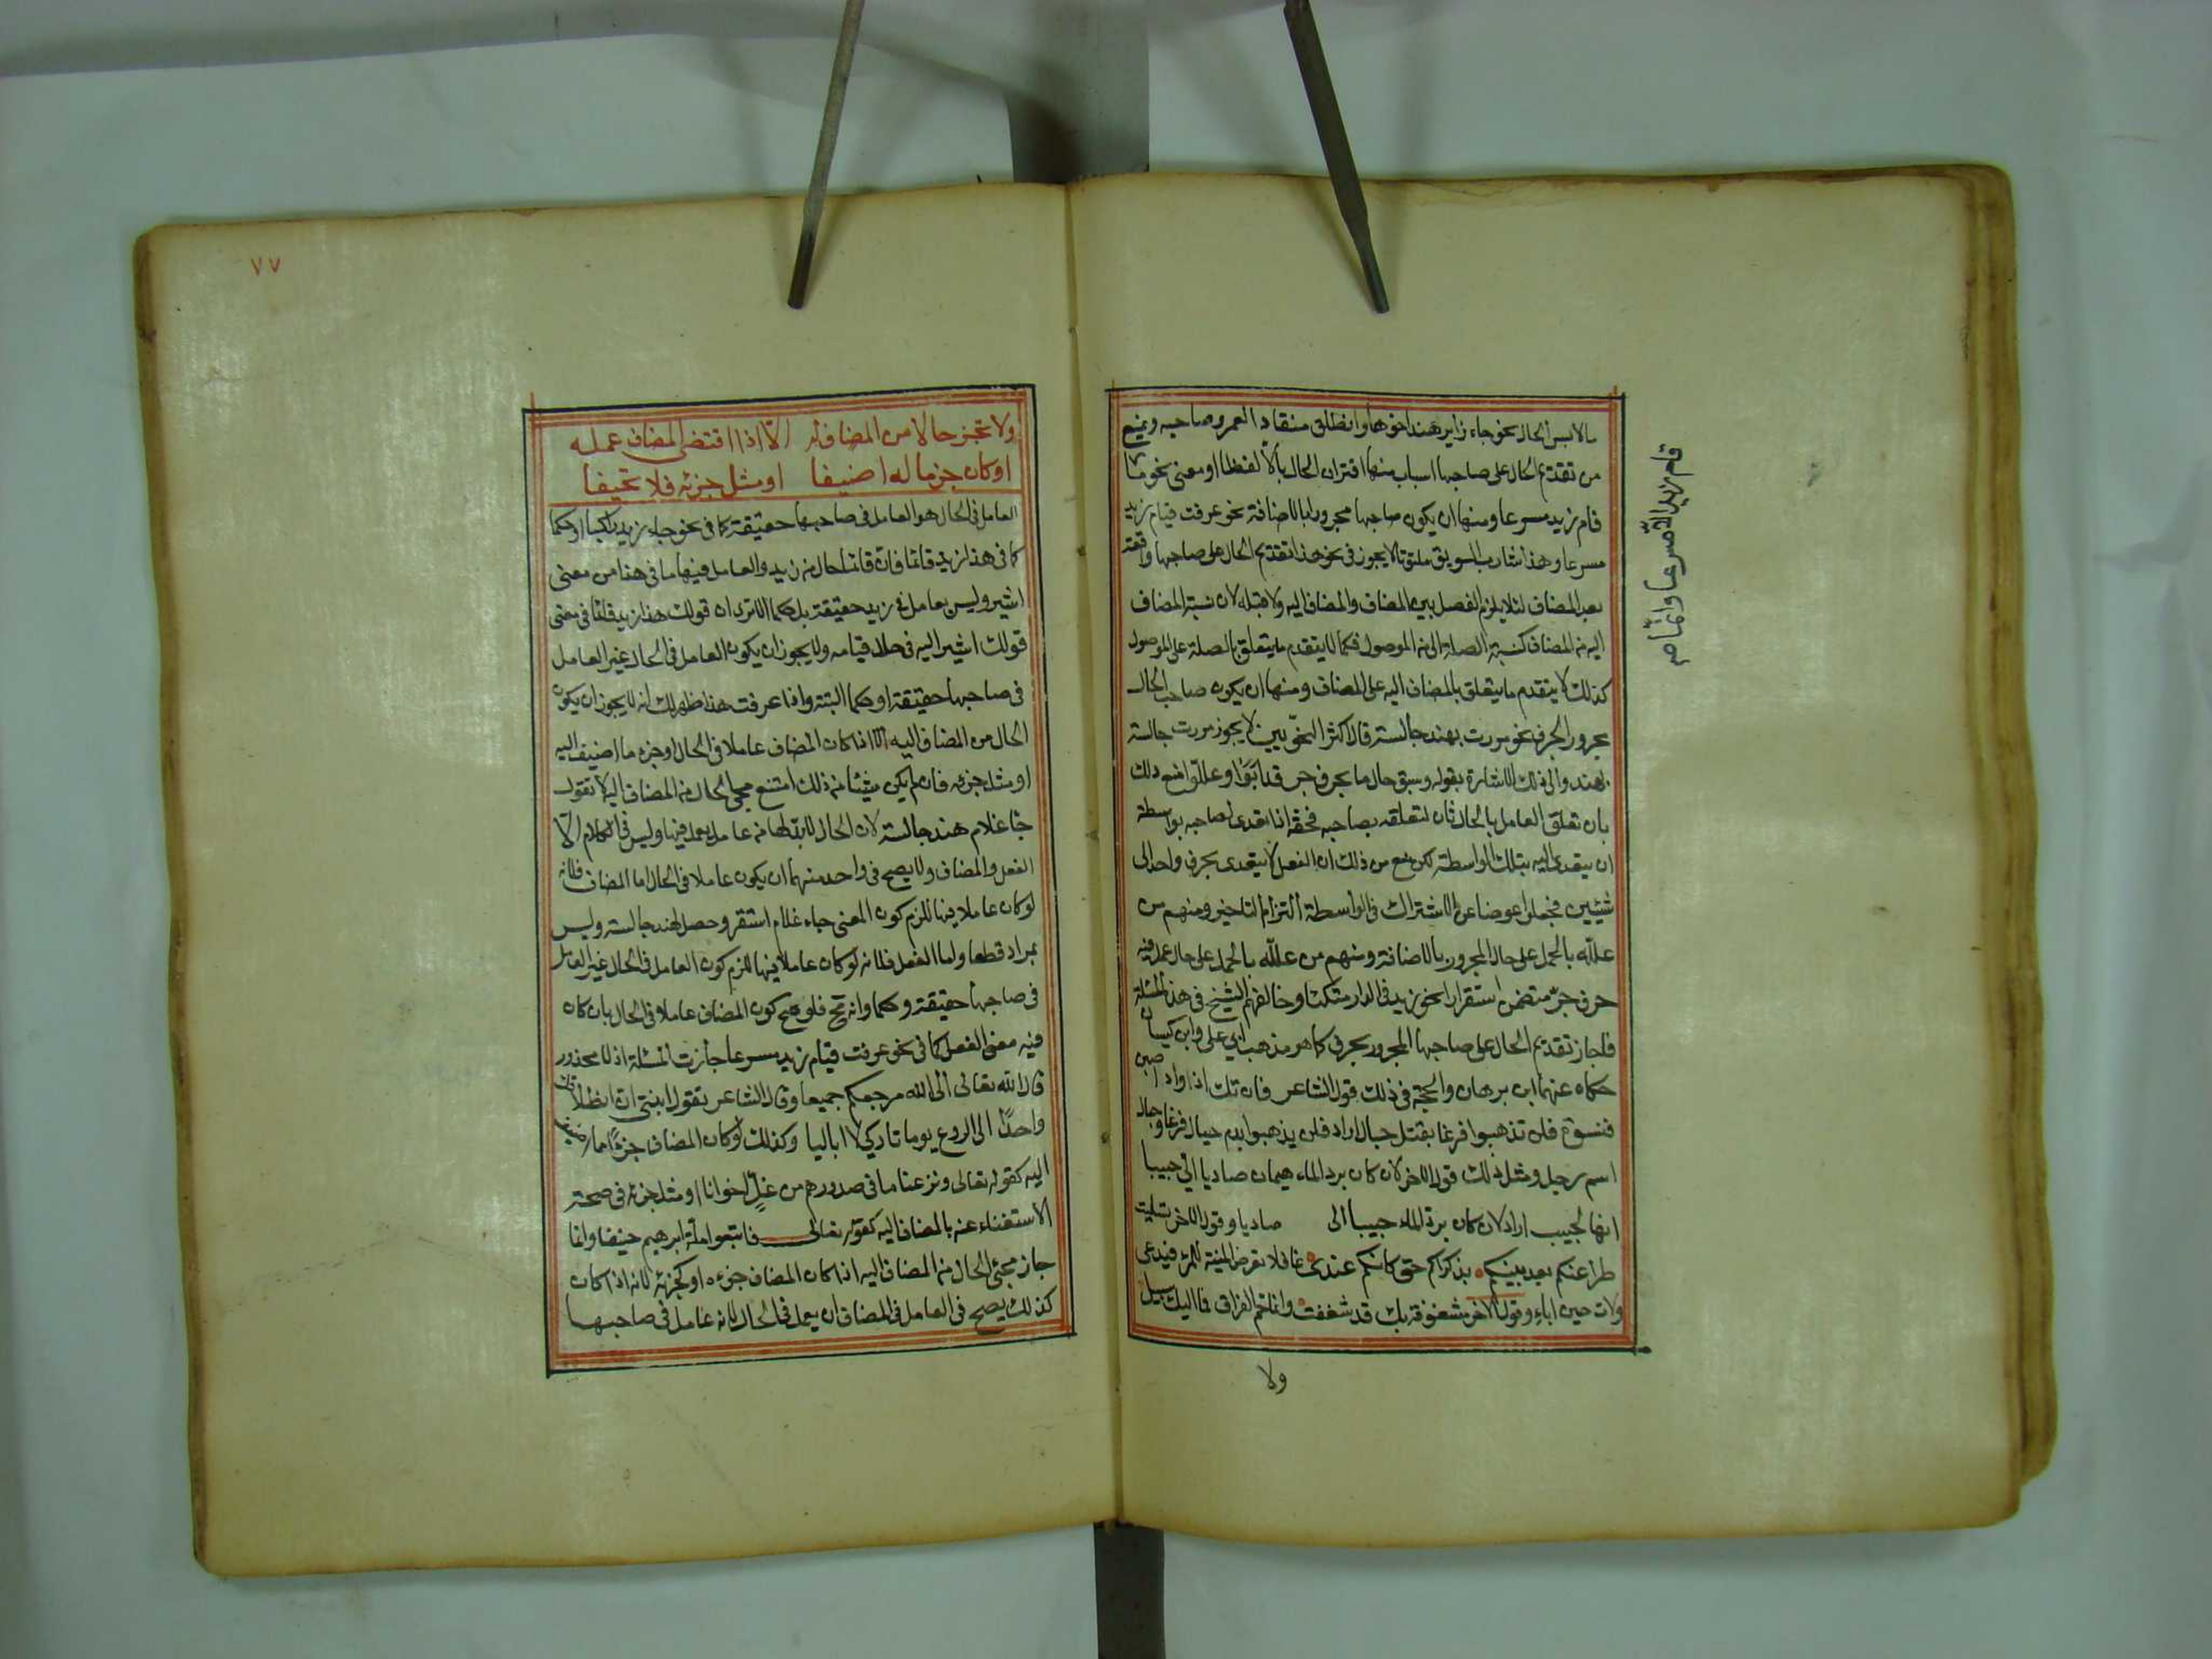 ما لابس الحال نحو جاء زاير هند اخوها وانطلق منقادا لعمرو صاحبه ويمنع
من تقديم الحال على صاحبها اسباب منها اقتران الحال بألا لفظا او معنى نحو ما
قام زيد مسرعا ومنها ان يكون صاحبها مجرورا بالاضافة نحو عرفت قيام زيد
مسرعا وهذا شارب السويق ملتوتا لا يجوز في نحو هذا تقديم الحال على صاحبها واقعة
بعد المضاف لئلا يلزم الفصل بين المضاف والمضاف اليه ولا قبله لان نسبة المضاف
اليه من المضاف كنسبة الصلة الى من الموصول فكما لا يتقدم ما يتعلق بالصلة على الموصول
كذلك لا يتقدم ما يتعلق بالمضاف اليه على المضاف ومنها ان يكون صاحب الحال
مجرورا بحرف نحو مررت بهند جالسة قال اكثر النحويين لا يجوز مررت جالسة
بهند والى ذلك الاشارة بقوله وسبق حال ما بحرف جر قد ابوا وعللوا منع ذلك
بان تعلق العامل بالحال ثان لتعلقه بصاحبه فحقه اذا تعدى لصاحبه بواسطة
ان يتعدى اليه بتلك الواسطة لكن منع من ذلك ان الفعل لا يتعدى بحرف واحد الى
شيئين فجعلوا عوضا عن الاشتراك في الواسطة التزام التاخير ومنهم من
علله بالحمل على حال المجرور بالاضافة ومنهم من علله بالحمل على حال عمل فيه
حرف جر متضمن استقرارا نحو زيد في الدار متكئا وخالفهم الشيخ في هذه المسئلة
فاجاز تقديم الحال على صاحبها المجرور بحرف كما هو مذهب ابي علي وابن كيسان
حكاه عنهما ابن برهان والحجة في ذلك قول الشاعر فان تك اذواد اصبن
ونسوة فلن تذهبوا فرغا بقتل حبال اراد فلن يذهبوا بدم حبال فرغا وحبال
اسم رجل ومثل ذلك قول الاخر لان كان برد الماء هيمان صاديا الي حبيبا
انها لحبيب اراد لان كان برد الماء حبيبا الى صاديا وقول الاخر تسليت
طرا عنكم بعد بينكم بذكراكم حتى كانكم عندي غافلا تعرض المنية للمرء فيدعى
ولات حين اباء وقول الاخر مشغوفة بك قد شغفت وانما حم الفراق فما اليك سبيل
ولا
قام زيد الا مسرعا وانما صح
٧٧
ولا تجز حالا من المضاف له الا اذا اقتضى المضاف عمله
او كان جزء ما له اضيفا او مثل جزئه فلا تحيفا
العامل في الحال هو العامل في صاحبها حقيقة كما في نحو جاء زيد راكبا او حكما
كما في هذا زيد قائما فان قائما حال من زيد والعامل فيها ما في هذا من معنى
اشير وليس بعامل في زيد حقيقة بل حكما الا ترى ان قولك هذا زيد قائما في معنى
قولك اشير اليه في حال قيامه ولا يجوز ان يكون العامل في الحال غير العامل
في صاحبها حقيقة او حكما البتة واذا عرفت هذا ظهر لك انه لا يجوز ان يكون
الحال من المضاف اليه الا اذا كان المضاف عاملا في الحال او جزء ما اضيف اليه
او مثل جزئه فان لم يكن شيئا من ذلك امتنع مجئ الحال من المضاف اليه لا تقول
جا غلام هند جالسة لان الحال لابد لها من عامل يعمل فيها وليس في الكلام الا
الفعل والمضاف ولا يصح في واحد منهما ان يكون عاملا في الحال اما المضاف فلانه
لو كان عاملا فيها للزم كون المعنى جاء غلام استقر وحصل لهند جالسة وليس
بمراد قطعا واما الفعل فلانه لو كان عاملا فيها للزم كون العامل في الحال غير العامل
في صاحبها حقيقة وحكما وانه مح فلو صح كون المضاف عاملا في الحال بان كان
فيه معنى الفعل كما في نحو عرفت قيام زيد مسرعا جازت المسئلة اذ لا محذور
قال الله تعالى الى الله مرجعكم جميعا وقال الشاعر تقول ابنتي ان انطلاقك
واحدا الى الروع يوما تاركي لا اباليا وكذلك لو كان المضاف جزءا ما اضيف
اليه كقوله تعالى ونزعنا ما في صدورهم من غل اخوانا او مثل جزئه في صحة
الاستغناء عنه بالمضاف اليه كقوله تعالى فاتبعوا ملة ابرهيم حنيفا وانما
جاز مجئ الحال من المضاف اليه اذا كان المضاف جزءه او كجزئه لانه اذا كان
كذلك يصح في العامل في المضاف ان يعمل في الحال لانه عامل في صاحبها